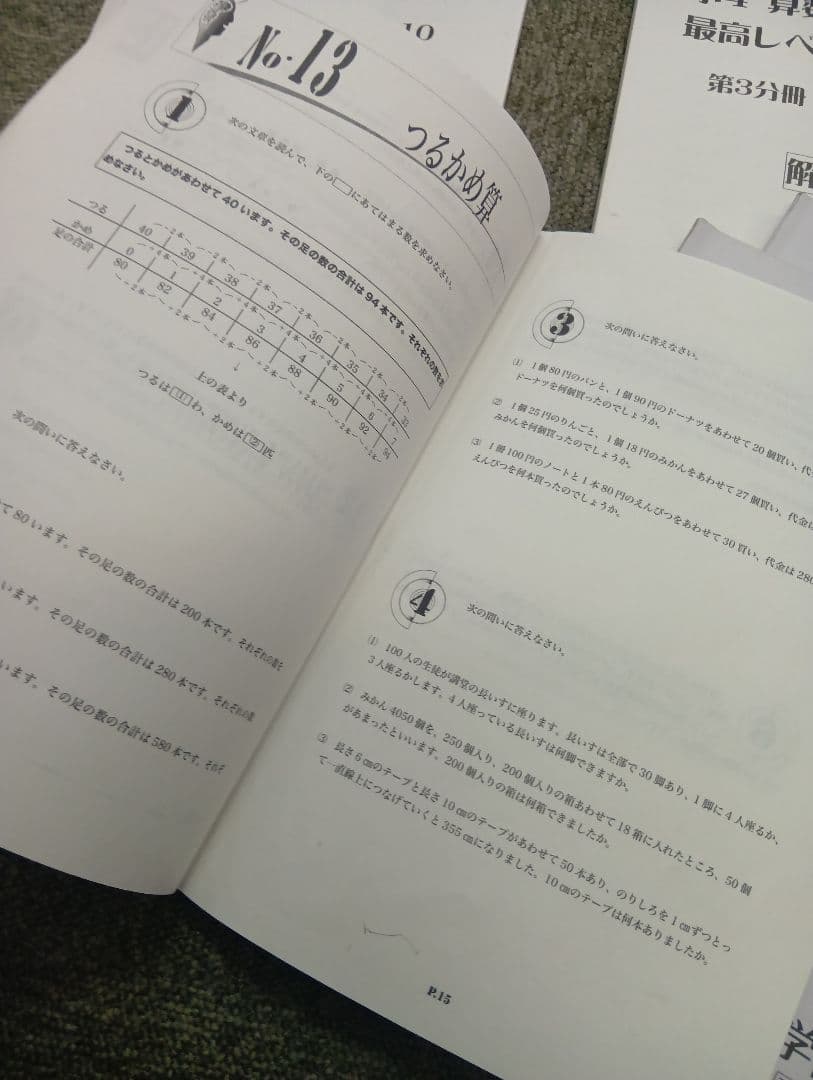 10
算数
最高レベ
第3分冊
解
No.13
つるかめ算
1
次の文章を読んで、下の□にあてはまる数を求めなさい。
つるとかめがあわせて40います。その足の数の合計は94本です。それぞれの数を求
めなさい。
つる 40 39 38 37 36 35 34 33
かめ 0 1 2 3 4 5 6 7
足の合計 80 82 84 86 88 90 92 94
↓
上の表より
つるは[1]わ、かめは[2]匹
次の問いに答えなさい。
て80います。その足の数の合計は200本です。それぞれの数を
います。その足の数の合計は280本です。それぞれの数
います。その足の数の合計は580本です。それぞ
3
次の問いに答えなさい。
(1) 1個80円のパンと、1個90円のドーナツをあわせて20個買い、代
ドーナツを何個買ったのでしょうか。
(2) 1個25円のりんごと、1個18円のみかんをあわせて27個買い、代金は
みかんを何個買ったのでしょうか。
(3) 1冊100円のノートと1本80円のえんぴつをあわせて30買い、代金は286
えんぴつを何本買ったのでしょうか。
4
次の問いに答えなさい。
(1) 100人の生徒が講堂の長いすに座ります。長いすは全部で30脚あり、1脚に4人座るか、
3人座るかします。4人座っている長いすは何脚できますか。
(2) みかん4050個を、250個入り、200個入りの箱あわせて18箱に入れたところ、50個
があまったといいます。200個入りの箱は何箱できましたか。
(3) 長さ6cmのテープと長さ10cmのテープがあわせて50本あり、のりしろを1cmずつとっ
て一直線上につなげていくと355cmになりました。10cmのテープは何本ありましたか。
P.15
学